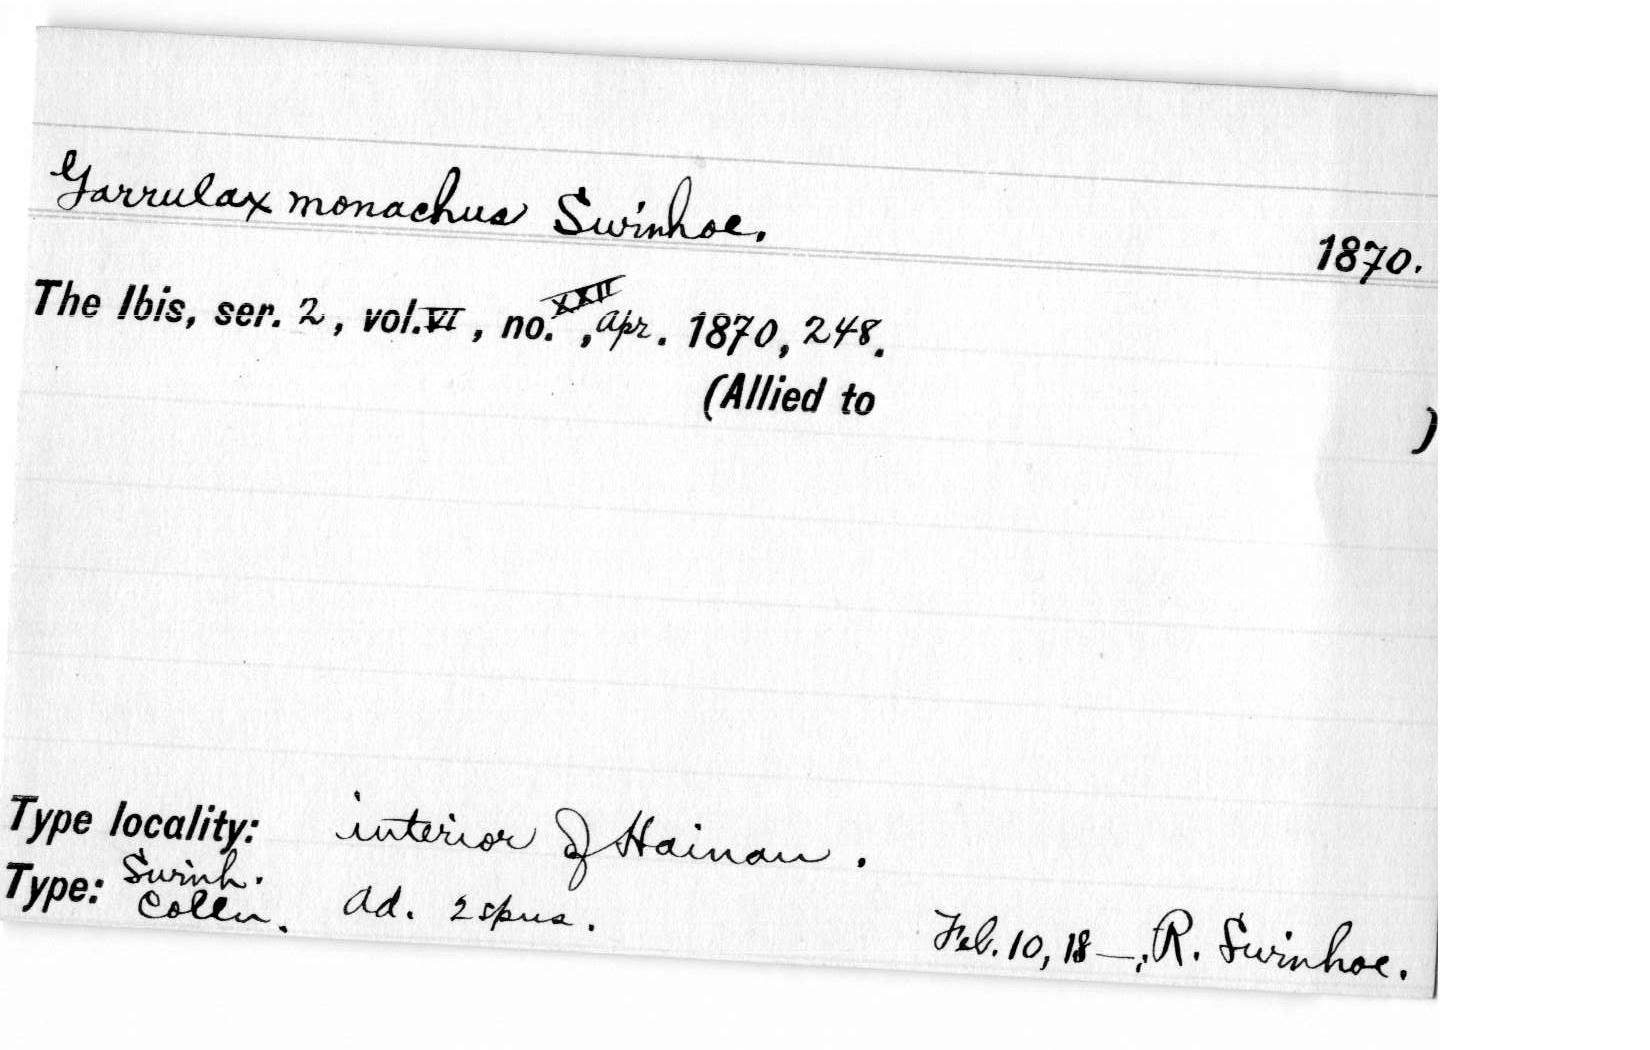 Garrulax monachus Swinhoe.
1870.
The Ibis, ser. 2, vol. VI, no. XXII, Apr. 1870, 248.
(Allied to )
Type locality: interior of Hainan.
Type: Swinh. Colln. Ad. 2 spns. Feb. 10, 18—, R. Swinhoe.